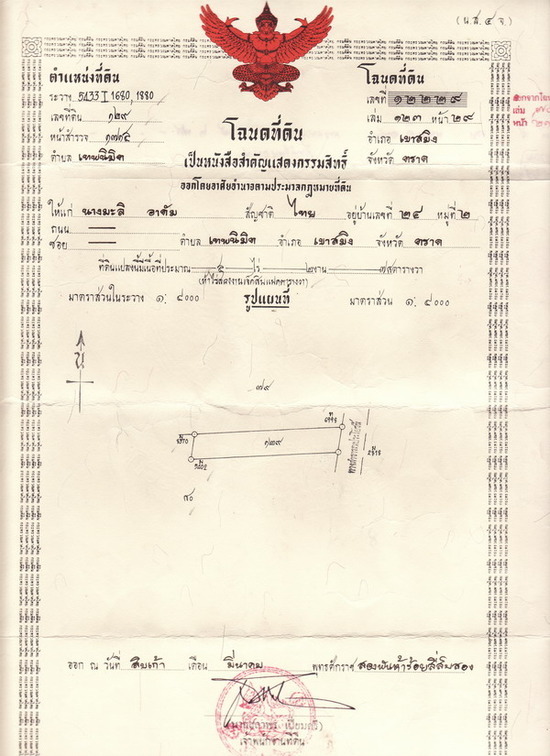 (น.ส. ๔ จ.)
ตำแหน่งที่ดิน
ระวาง 5433 I 1680, 1880
เลขที่ดิน ๑๒๙
หน้าสำรวจ
ตำบล เทพนิมิต
โฉนดที่ดิน
เลขที่ ๑๒๒๒๙
เล่ม ๑๒๓ หน้า ๒๙
อำเภอ เขาสมิง
จังหวัด ตราด
โฉนดที่ดิน
เป็นหนังสือสำคัญแสดงกรรมสิทธิ์
ออกโดยอาศัยอำนาจตามประมวลกฎหมายที่ดิน
ให้แก่ นางมะลิ อาดัม สัญชาติ ไทย อยู่บ้านเลขที่ ๒๔ หมู่ที่ ๒
ถนน
ซอย ตำบล เทพนิมิต อำเภอ เขาสมิง จังหวัด ตราด
ที่ดินแปลงนี้มีเนื้อที่ประมาณ ๕ ไร่ ๒ งาน ๗ ตารางวา
(ห้าไร่สองงานเจ็ดตารางวา)
มาตราส่วนในระวาง ๑: ๔๐๐๐ รูปแผนที่ มาตราส่วน ๑: ๔๐๐๐
น
๗๕
๑๒๙
๘๐
ออก ณ วันที่ สิบเก้า เดือน มีนาคม พุทธศักราช สองพันห้าร้อยสี่สิบสอง
เจ้าพนักงานที่ดิน